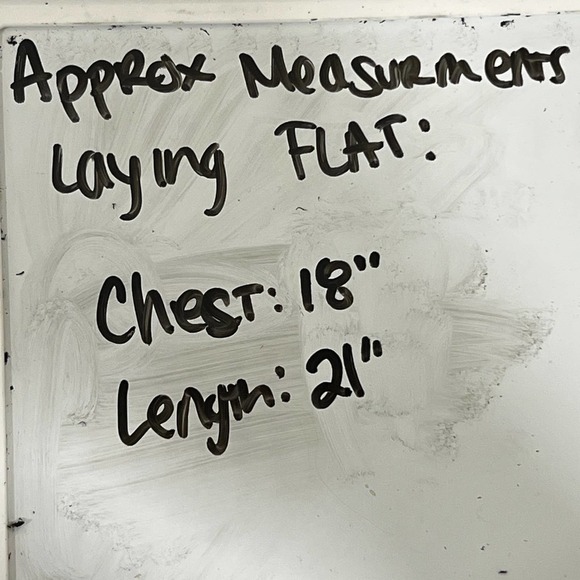 Approx Measurments
Laying FLAT:
Chest: 18"
Length: 21"